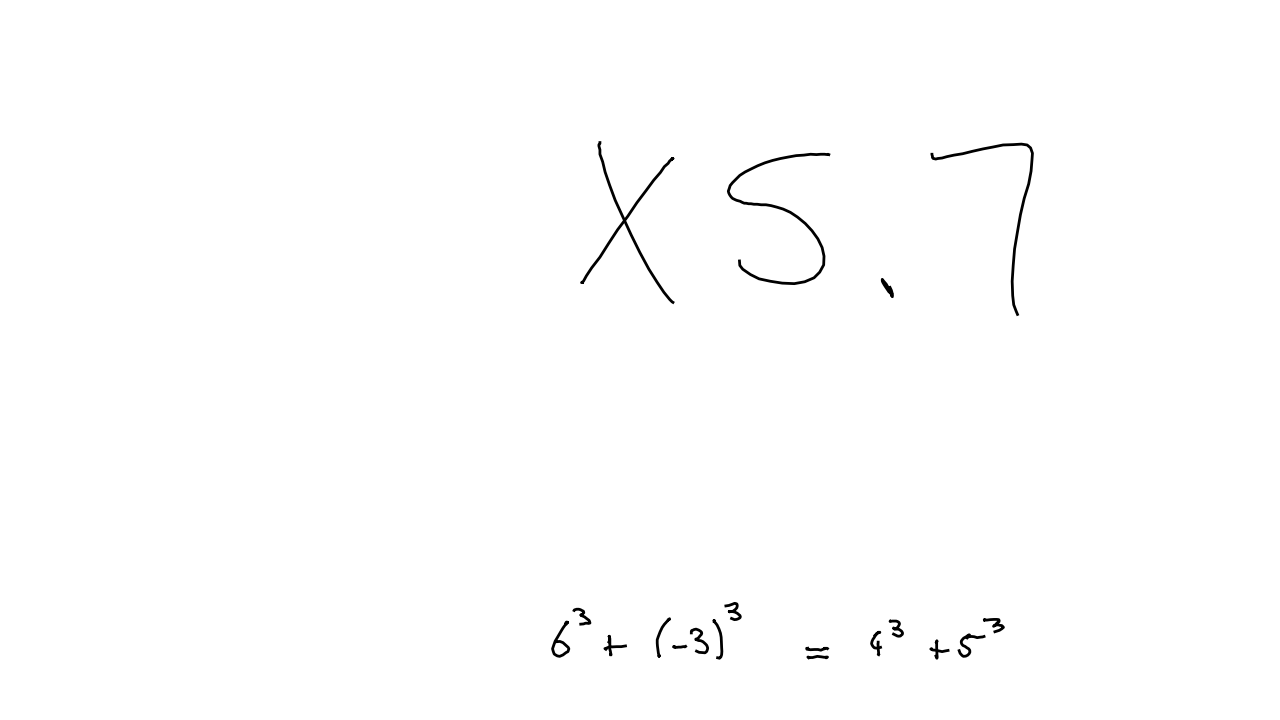 X5.7
6³ + (-3)³ = 4³ + 5³